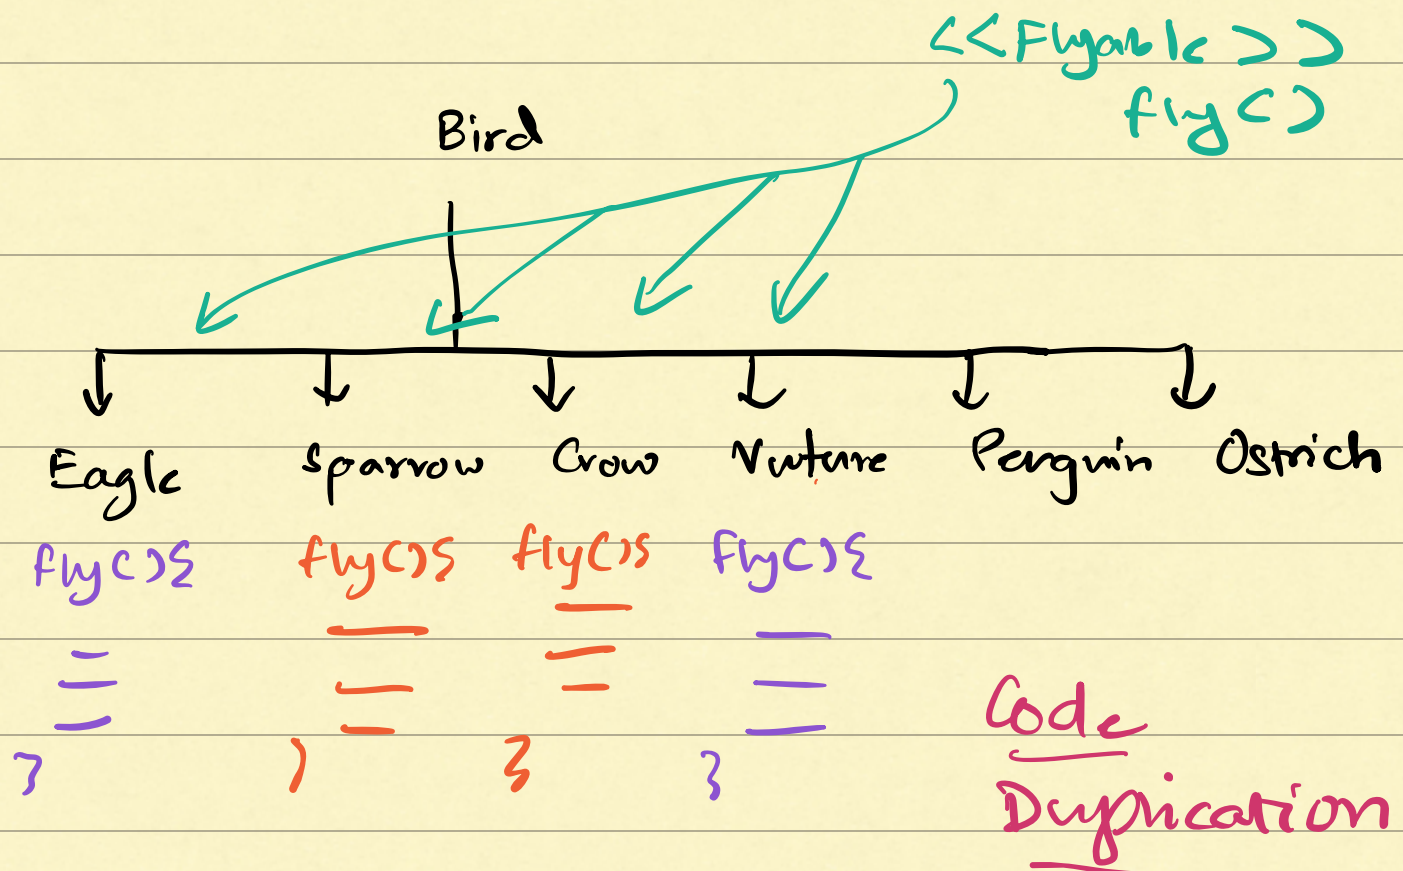 <<Flyable>>
fly()
Bird
Eagle Sparrow Crow Penguin Ostrich
fly(){ fly(){ fly(){ fly(){
} } } }
Code
Duplication